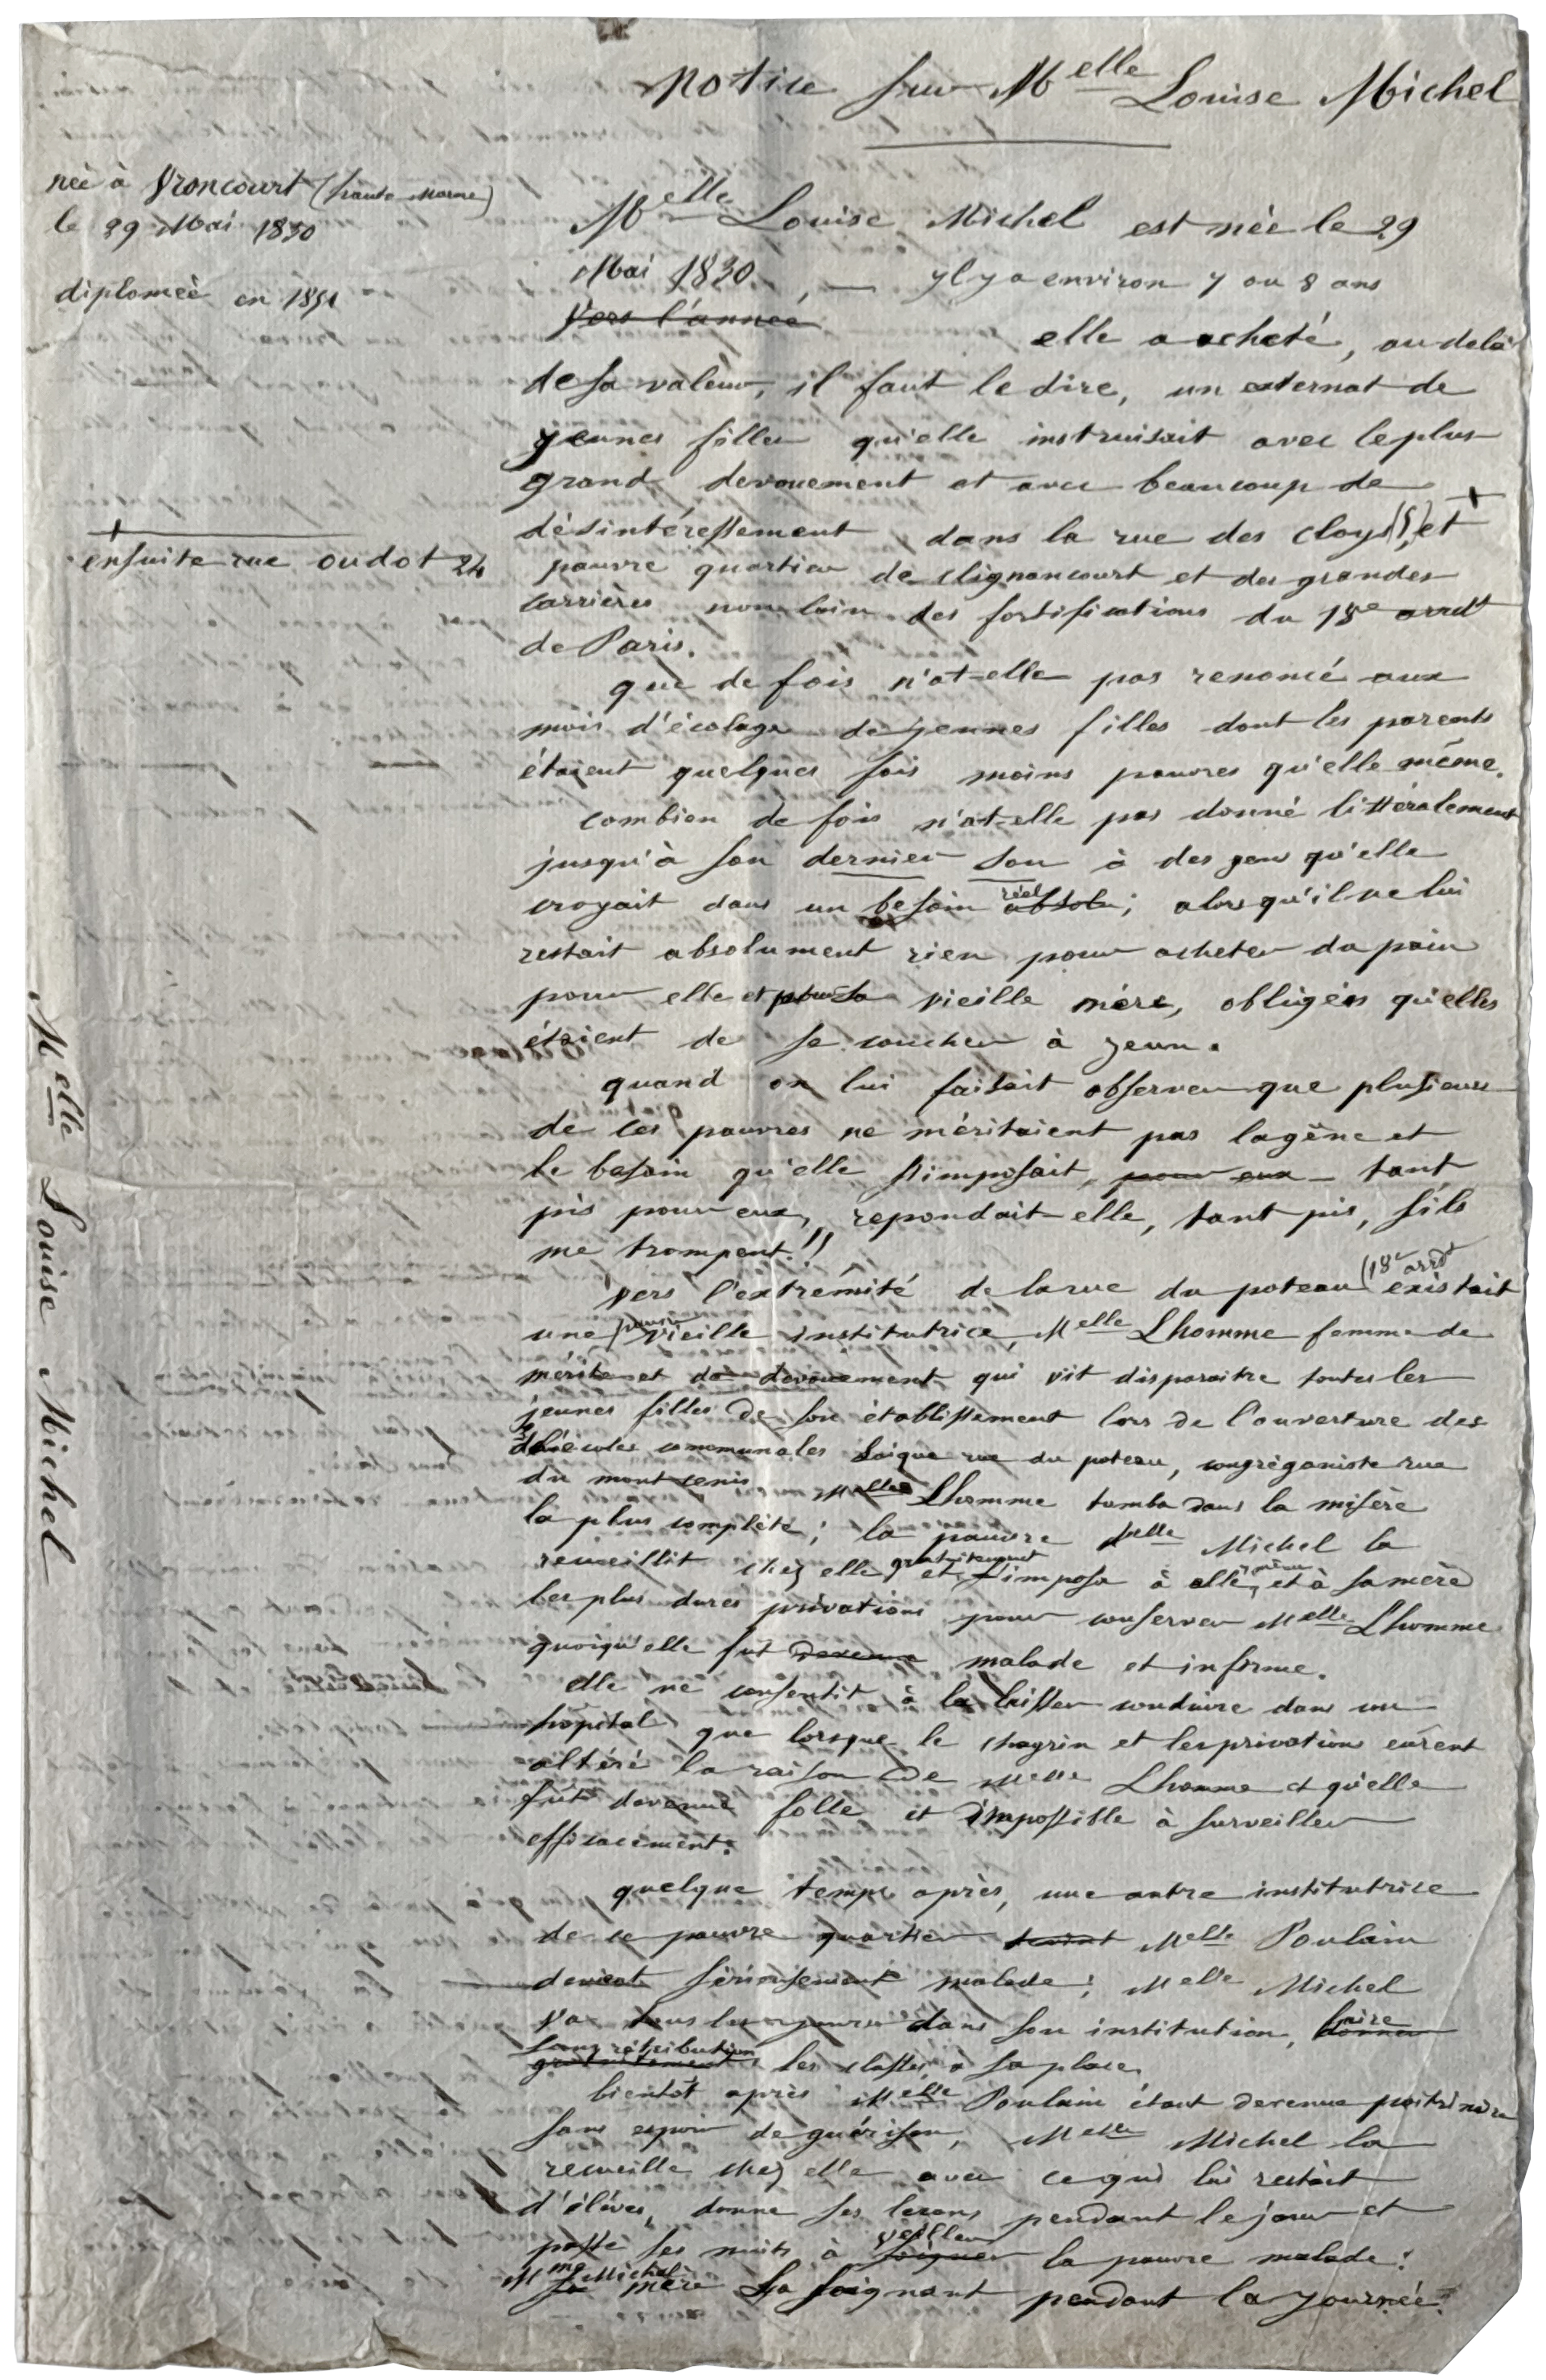 Notice sur Melle Louise Michel
née à Vroncourt (haute Marne)
le 29 Mai 1830
diplomée en 1851
Melle Louise Michel est née le 29
Mai 1830, — Il y a environ 7 ou 8 ans
Vers l'année
elle a acheté, au delà
de sa valeur, il faut le dire, un externat de
jeunes filles qu'elle instruisait avec le plus
grand devouement et avec beaucoup de
désintéressement dans la rue des Cloys et +
+ ensuite rue oudot 24
pauvre quartier de Clignancourt et des grandes
Carrières non loin des fortifications du 18e arrdt
de Paris.
que de fois n'at-elle pas renoncé aux
mois d'écolage de jeunes filles dont les parents
étaient quelques fois moins pauvres qu'elle même.
Combien de fois n'at-elle pas donné littéralement
jusqu'à son dernier sou à des gens qu'elle
croyait dans un besoin absolu réel; alors qu'il ne lui
restait absolument rien pour acheter du pain
pour elle et pour sa vieille mère, obligées qu'elles
étaient de se coucher à jeun.
quand on lui faisait observer que plusieurs
de ces pauvres ne méritaient pas la gêne et
le besoin qu'elle s'imposait, pour eux — tant
pis pour eux, repondait-elle, tant pis, s'ils
me trompent!"
Vers l'extrémité de la rue du poteau (18e arrdt existait
une pauvre vieille institutrice, Melle Lhomme femme de
mérite et de devouement qui vit disparaitre toutes les
jeunes filles de son établissement lors de l'ouverture des
écoles communales laique rue du poteau, congréganiste rue
du mont cenis Melle Lhomme tomba dans la misère
la plus complète; la pauvre Melle Michel la
recueillit chez elle gratuitement et s'imposa à elle même, et à sa mère
les plus dures privations pour conserver Melle Lhomme
quoiqu'elle fut devenue malade et infirme.
elle ne consentit à la laisser conduire dans un
hopital que lorsque le chagrin et les privations eûrent
altéré la raison de Melle Lhomme et qu'elle
fut devenue folle et impossible à surveiller
efficacement.
quelque temps après, une autre institutrice
de ce pauvre quartier Melle Poulain
devient sérieusement malade; Melle Michel
va tous les jours dans son institution, donner faire
gratuitement sans rétribution les classes à sa place
bientôt après Melle Poulain étant devenue poitrinaire
sans espoir de guérison, Melle Michel la
recueille chez elle avec ce qui lui restait
d'élèves, donne ses leçons pendant le jour et
passe ses nuits à soigner veiller la pauvre malade;
sa mère Mme Michel la soignant pendant la journée.
Melle Louise Michel